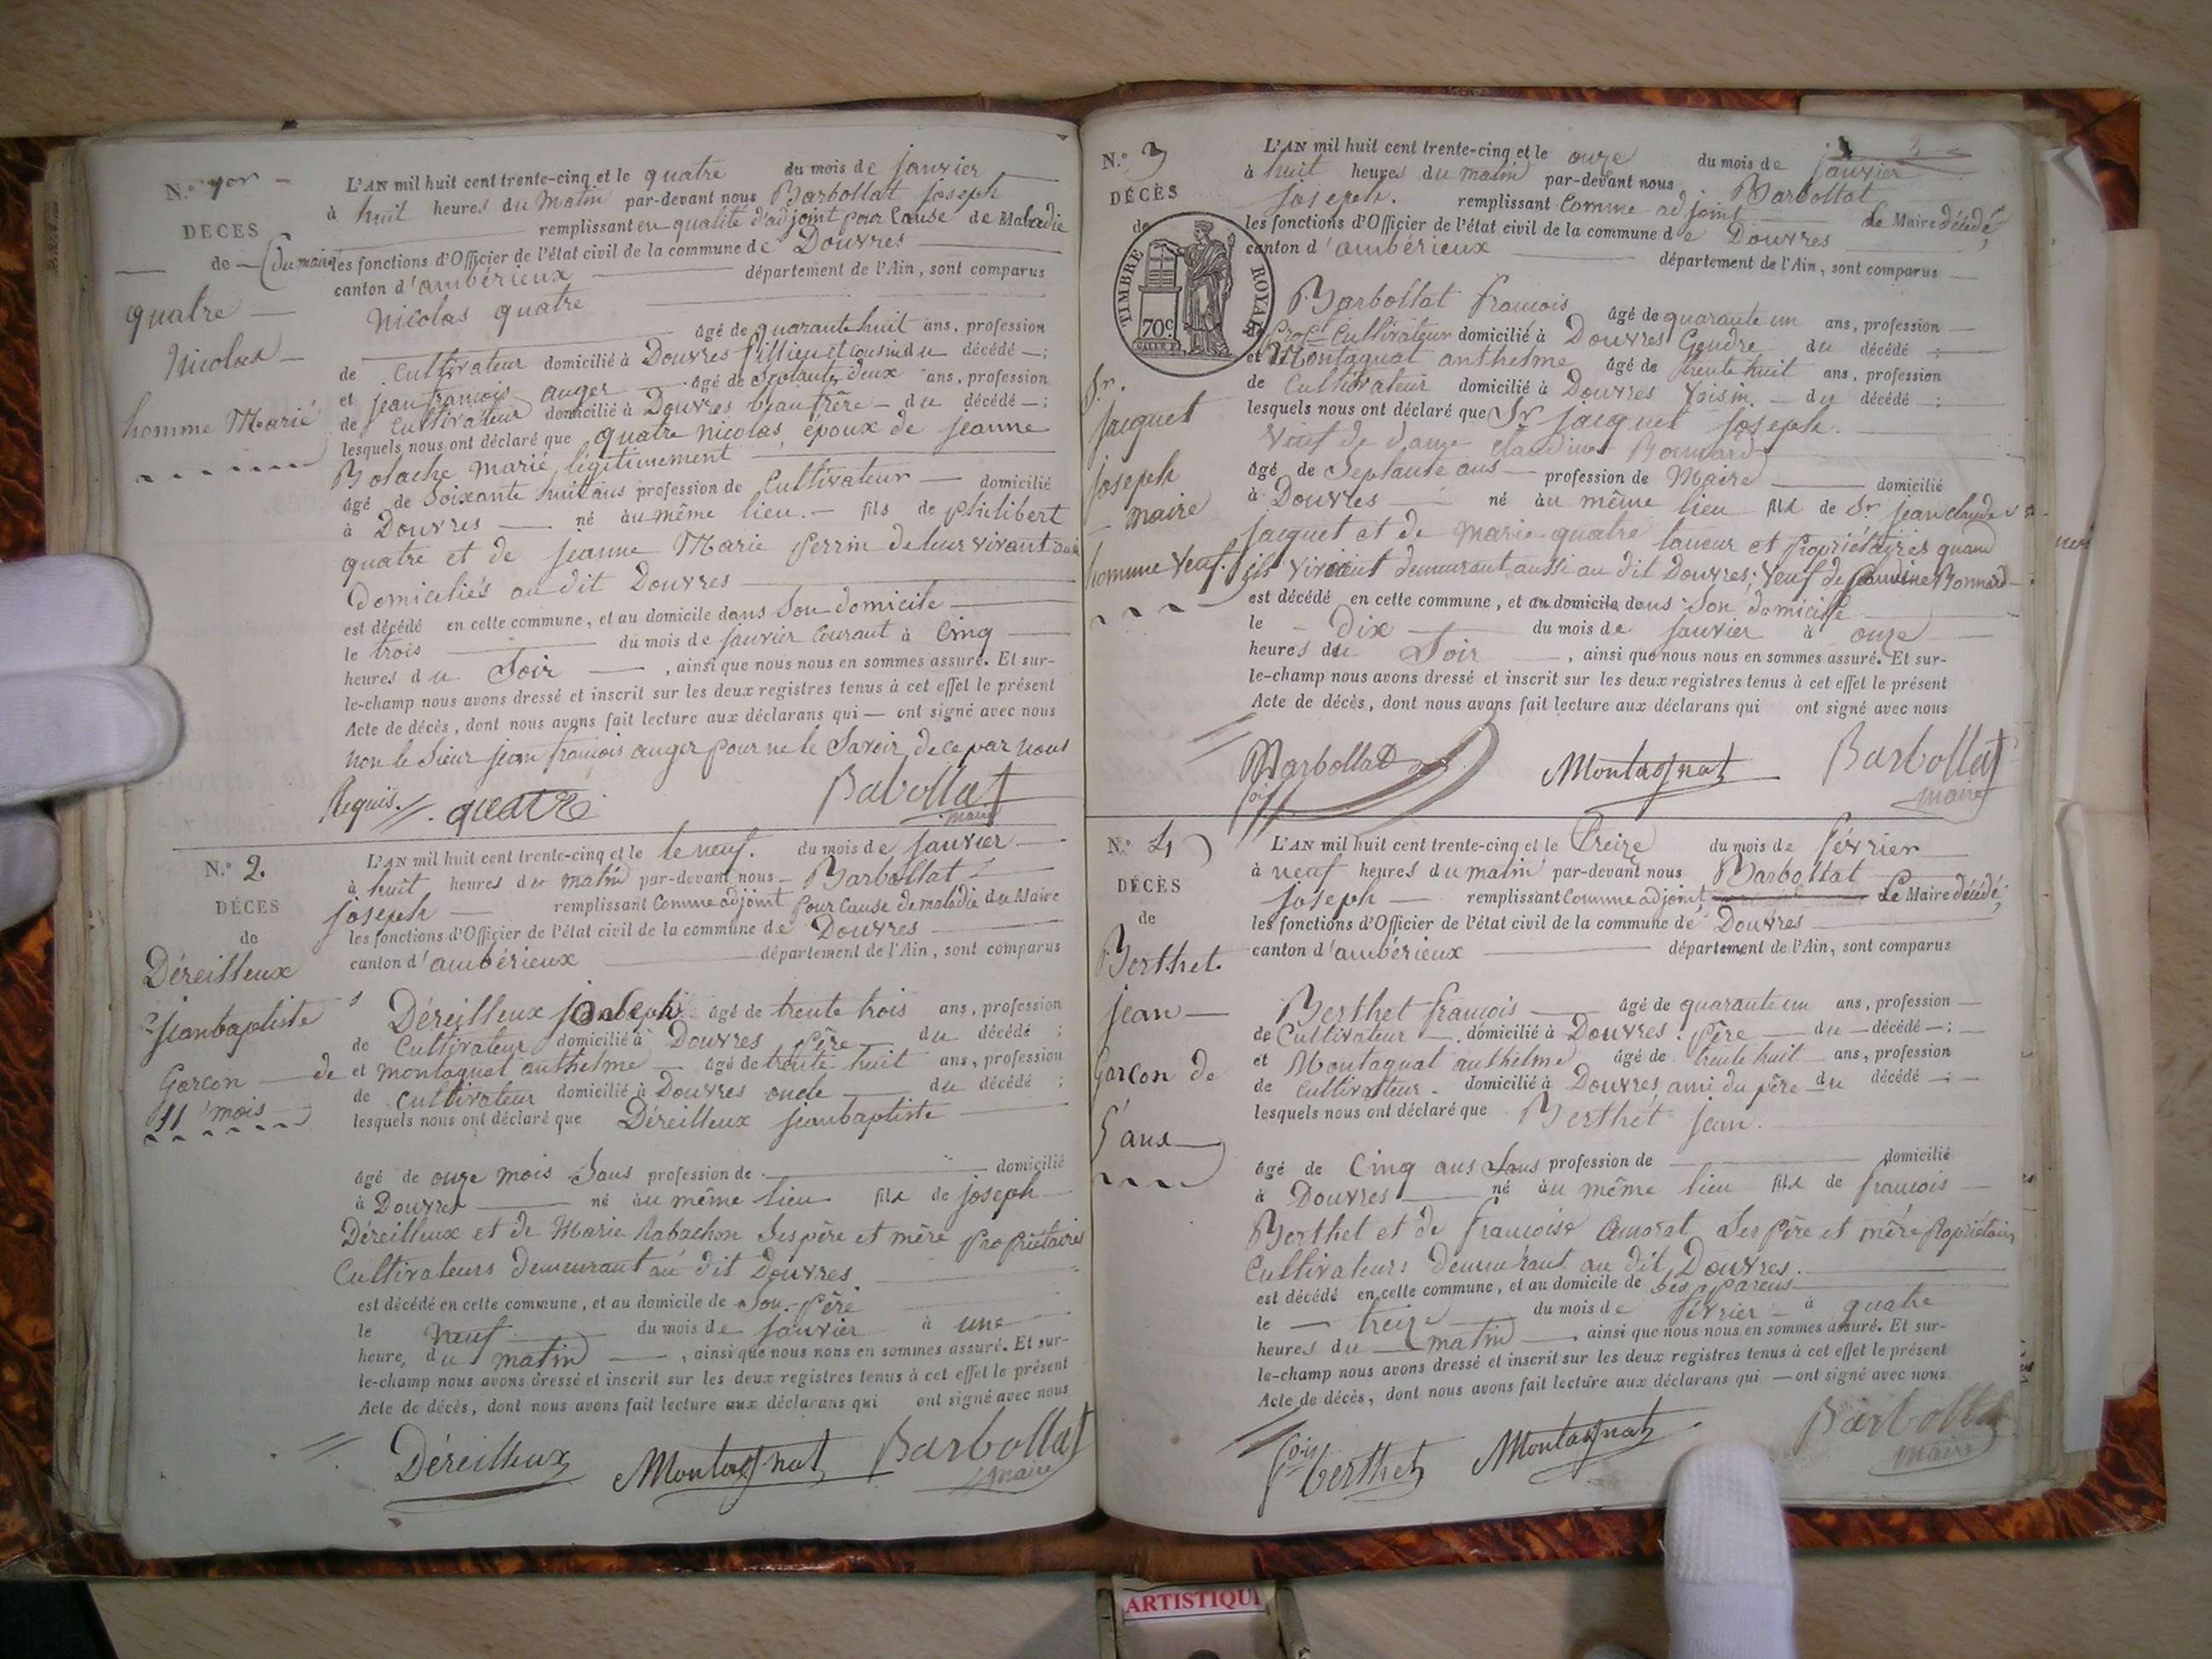 N.º 1er
DÉCÈS
de
quatre
Nicolas
homme Marié
L'AN mil huit cent trente-cinq et le quatre du mois de janvier
à huit heures du Matin par-devant nous Barbollat joseph
remplissant en qualité d'adjoint pour Cause de Maladie
(du maire les fonctions d'Officier de l'état civil de la commune de Douvres
canton d'ambérieux département de l'Ain, sont comparus
Nicolas quatre
âgé de quarante huit ans, profession
de Cultivateur domicilié à Douvres fillieu et cousin du décédé ;
et jean françois auger âgé de Septante deux ans, profession
de Cultivateur domicilié à Douvres beau frère du décédé ;
lesquels nous ont déclaré que quatre nicolas, époux de jeanne
Bolache marié légitimement
âgé de Soixante huit ans profession de Cultivateur domicilié
à Douvres né au même lieu. fils de philibert
quatre et de jeanne Marie perrin de leur vivant
Domiciliés au dit Douvres
est décédé en cette commune, et au domicile dans Son domicile
le trois du mois de janvier Courant à Cinq
heures du Soir, ainsi que nous nous en sommes assuré. Et sur-
le-champ nous avons dressé et inscrit sur les deux registres tenus à cet effet le présent
Acte de décès, dont nous avons fait lecture aux déclarans qui ont signé avec nous
non le Sieur jean françois auger pour ne le Savoir, de ce par nous
Requis. quatre Babollat
maire
N.º 2.
DÉCÈS
de
Déreilleux
jeanbaptiste
Garcon de
11 mois
L'AN mil huit cent trente-cinq et le le neuf. du mois de janvier
à huit heures du matin par-devant nous Barbollat
joseph remplissant Comme adjoint pour Cause de maladie du Maire
les fonctions d'Officier de l'état civil de la commune de Douvres
canton d'ambérieux département de l'Ain, sont comparus
Déreilleux joseph âgé de trente trois ans, profession
de Cultivateur domicilié à Douvres père du décédé ;
et montagnat anthelme âgé de trente huit ans, profession
de Cultivateur domicilié à Douvres oncle du décédé ;
lesquels nous ont déclaré que Déreilleux jeanbaptiste
âgé de onze mois Sans profession de domicilié
à Douvres né au même lieu fils de joseph
Déreilleux et de Marie Rabachon Ses père et mère propriétaires
Cultivateurs Demeurant au dit Douvres
est décédé en cette commune, et au domicile de Son père
le neuf du mois de janvier à une
heure du matin, ainsi que nous nous en sommes assuré. Et sur-
le-champ nous avons dressé et inscrit sur les deux registres tenus à cet effet le présent
Acte de décès, dont nous avons fait lecture aux déclarans qui ont signé avec nous
Déreilleux Montagnat Barbollat
maire
N.º 3
DÉCÈS
de
TIMBRE ROYAL
70c
Sr.
jacquet
joseph
maire
homme Veuf.
L'AN mil huit cent trente-cinq et le onze du mois de janvier
à huit heures du matin par-devant nous Barbollat
joseph. remplissant Comme adjoint Le Maire décédé,
les fonctions d'Officier de l'état civil de la commune de Douvres
canton d'ambérieux département de l'Ain, sont comparus
Barbollat françois âgé de quarante un ans, profession
Cultivateur domicilié à Douvres Gendre du décédé ;
et Montagnat anthelme âgé de trente huit ans, profession
de Cultivateur domicilié à Douvres Voisin du décédé ;
lesquels nous ont déclaré que Sr jacquet joseph.
Veuf de dame claudine Bonnard
âgé de Septante ans profession de Maire domicilié
à Douvres né au même lieu fils de Sr jean claude
jacquet et de marie quatre taneur et propriétaires quand
ils vivoient demeurant aussi au dit Douvres; Veuf de Claudine Bonnard
est décédé en cette commune, et au domicile dans Son domicile
le Dix du mois de janvier à onze
heures du Soir, ainsi que nous nous en sommes assuré. Et sur-
le-champ nous avons dressé et inscrit sur les deux registres tenus à cet effet le présent
Acte de décès, dont nous avons fait lecture aux déclarans qui ont signé avec nous
Barbollat Montagnat Barbollat
maire
N.º 4
DÉCÈS
de
Berthet.
jean
Garcon de
5 ans
L'AN mil huit cent trente-cinq et le treize du mois de février
à neuf heures du matin par-devant nous Barbollat
joseph remplissant Comme adjoint, Le Maire décédé,
les fonctions d'Officier de l'état civil de la commune de Douvres
canton d'ambérieux département de l'Ain, sont comparus
Berthet françois âgé de quarante un ans, profession
de Cultivateur domicilié à Douvres père du décédé ;
et Montagnat anthelme âgé de trente huit ans, profession
de Cultivateur domicilié à Douvres, ami du père du décédé ;
lesquels nous ont déclaré que Berthet jean.
âgé de Cinq ans Sans profession de domicilié
à Douvres né au même lieu fils de françois
Berthet et de françoise Amorat Ses père et mère propriétaires
Cultivateurs demeurant au dit Douvres.
est décédé en cette commune, et au domicile de Ses parens
le treize du mois de février à quatre
heures du matin, ainsi que nous nous en sommes assuré. Et sur-
le-champ nous avons dressé et inscrit sur les deux registres tenus à cet effet le présent
Acte de décès, dont nous avons fait lecture aux déclarans qui ont signé avec nous
fois berthet Montagnat Barbollat
maire
ARTISTIQU